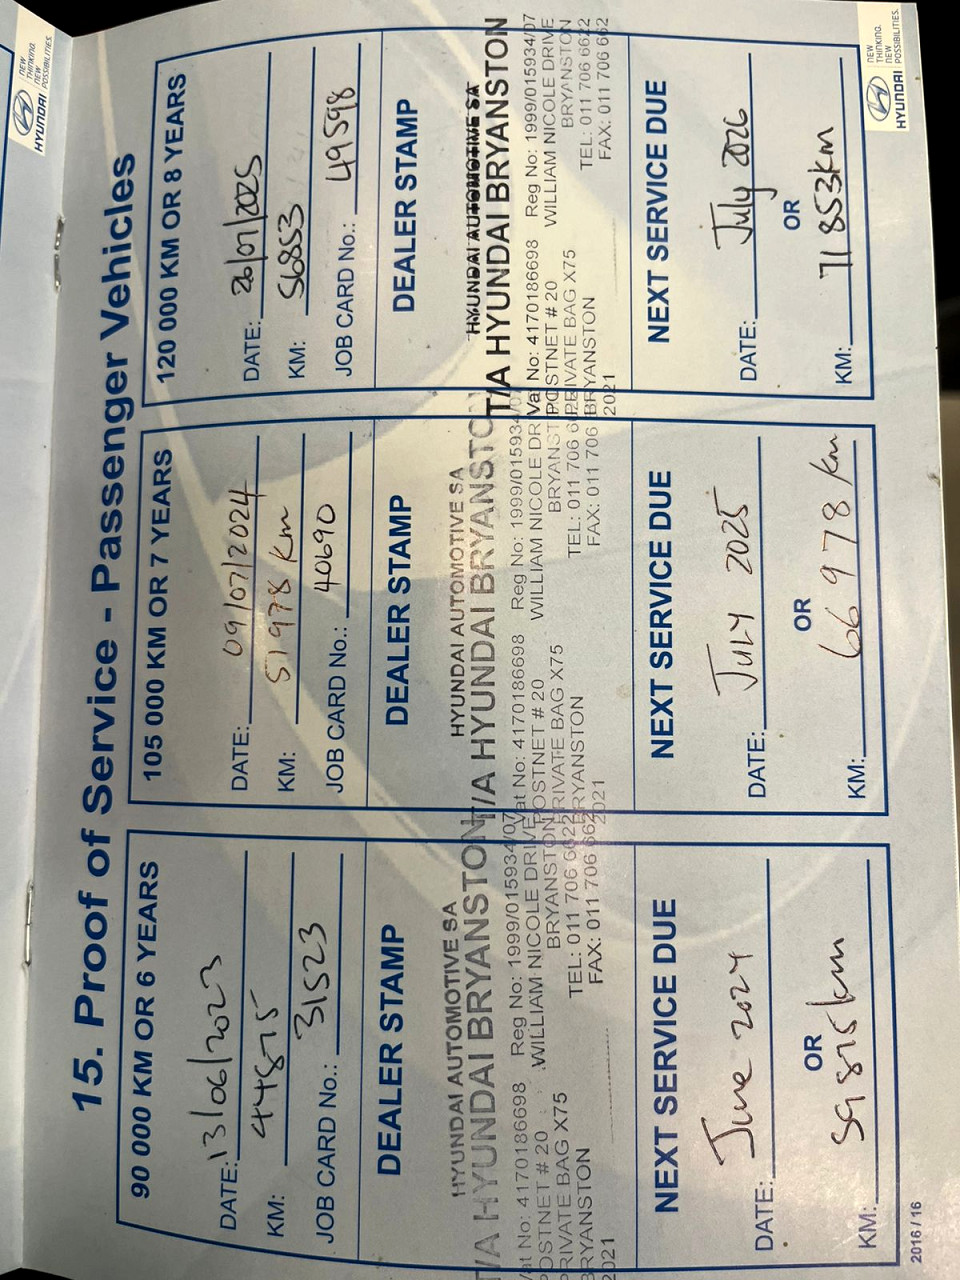 15. Proof of Service - Passenger Vehicles
90 000 KM OR 6 YEARS
DATE: 13/06/2023
KM: 44875
JOB CARD No.: 31523
DEALER STAMP
HYUNDAI AUTOMOTIVE SA
T/A HYUNDAI BRYANSTON
Vat No: 4170186698 Reg No: 1999/015934/07
POSTNET # 20 WILLIAM NICOLE DRIVE
PRIVATE BAG X75 BRYANSTON
BRYANSTON TEL: 011 706 6622
2021 FAX: 011 706 662
NEXT SERVICE DUE
DATE: June 2024
OR
KM: 59875km
105 000 KM OR 7 YEARS
DATE: 09/07/2024
KM: 51978 km
JOB CARD No.: 40690
DEALER STAMP
HYUNDAI AUTOMOTIVE SA
T/A HYUNDAI BRYANSTON
Vat No: 4170186698 Reg No: 1999/015934
POSTNET # 20 WILLIAM NICOLE DR
PRIVATE BAG X75 BRYANST
BRYANSTON TEL: 011 706 6
2021 FAX: 011 706
NEXT SERVICE DUE
DATE: JULY 2025
OR
KM: 66 978 km
120 000 KM OR 8 YEARS
DATE: 26/07/2025
KM: 56853
JOB CARD No.: 49598
DEALER STAMP
HYUNDAI AUTOMOTIVE SA
T/A HYUNDAI BRYANSTON
Vat No: 4170186698 Reg No: 1999/015934/07
POSTNET # 20 WILLIAM NICOLE DRIVE
PRIVATE BAG X75 BRYANSTON
BRYANSTON TEL: 011 706 6622
2021 FAX: 011 706 662
NEXT SERVICE DUE
DATE: July 2026
OR
KM: 71853km
2016 / 16
HYUNDAI
NEW THINKING.
NEW POSSIBILITIES.
HYUNDAI
NEW THINKING.
NEW POSSIBILITIES.